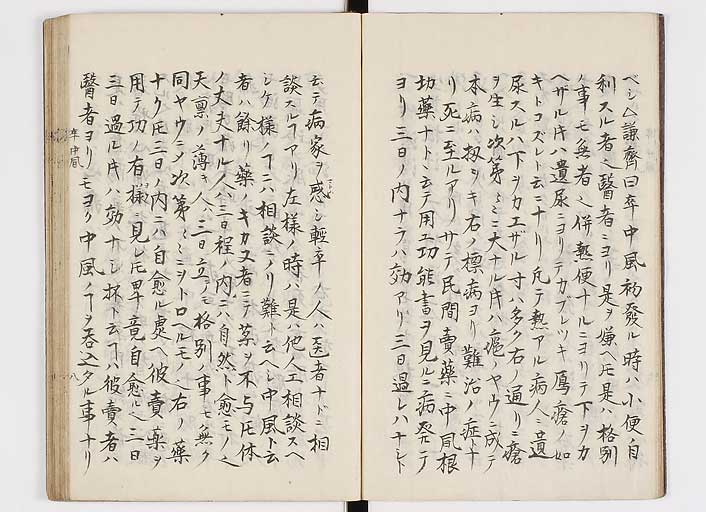 ベシ△謙齊曰卒中風初發ル時ハ小便自
利スル者ヘ醫者ニヨリ是ヲ嫌ヘ𪜈是ハ格別
ノ事モ無者ヘ併熱便ナルニヨリテ下ヲカ
ヘザル𪜈ハ遺尿ニヨリテカブレツキ鴈瘡ノ如
キトコズレト云ニナリ凡テ熱アル病人ニ遺
尿スルハ下ヲカエザル寸ハ多ク右ノ通リニ瘡
ヲ生シ次第〻ニ大ナル𪜈ハ瘡ノヤウニ成テ
本病ハ扨ヲキ右ノ標病ヨリ難治ノ症ト
リ死ニ至ルアリサテ民間賣藥ニ中風根
切藥ナトヽ云テ用エ功能書ヲ見ルニ病発テ
ヨリ三日ノ内ナラハ効アリ三日過レハナシト
云テ病家ヲ惑シ輕卒ノ人ハ医者ナドニ相
談スルヿアリ左様ノ時ハ是ハ他人エ相談スヘ
シケ様ノヿニハ相談ニノリ難ト云ヘシ中風ト云
者ハ餘リ藥ノキカヌ者ニテ藥ヲ不与𪜈体
ノ丈夫ナル人ハ三日程ノ内ニハ自然ト愈モノヘ
天禀ノ薄キ人ハ三日立ツモ格別ノ事モ無ク
同ヤウニメ次第〻ニヲトロヘルモノヘ右ノ藥
ナク𪜈三日ノ内ニハ自愈ル處ヘ彼賣藥ヲ
用テ功ノ有様ニ見レ𪜈畢竟自愈ルヘ三日
三日過ル𪜈ハ効ナシ抔ト云ヿハ彼賣者ハ
醫者ヨリモヨク中風ノヿヲ呑込タル事ナリ
卒中風
八